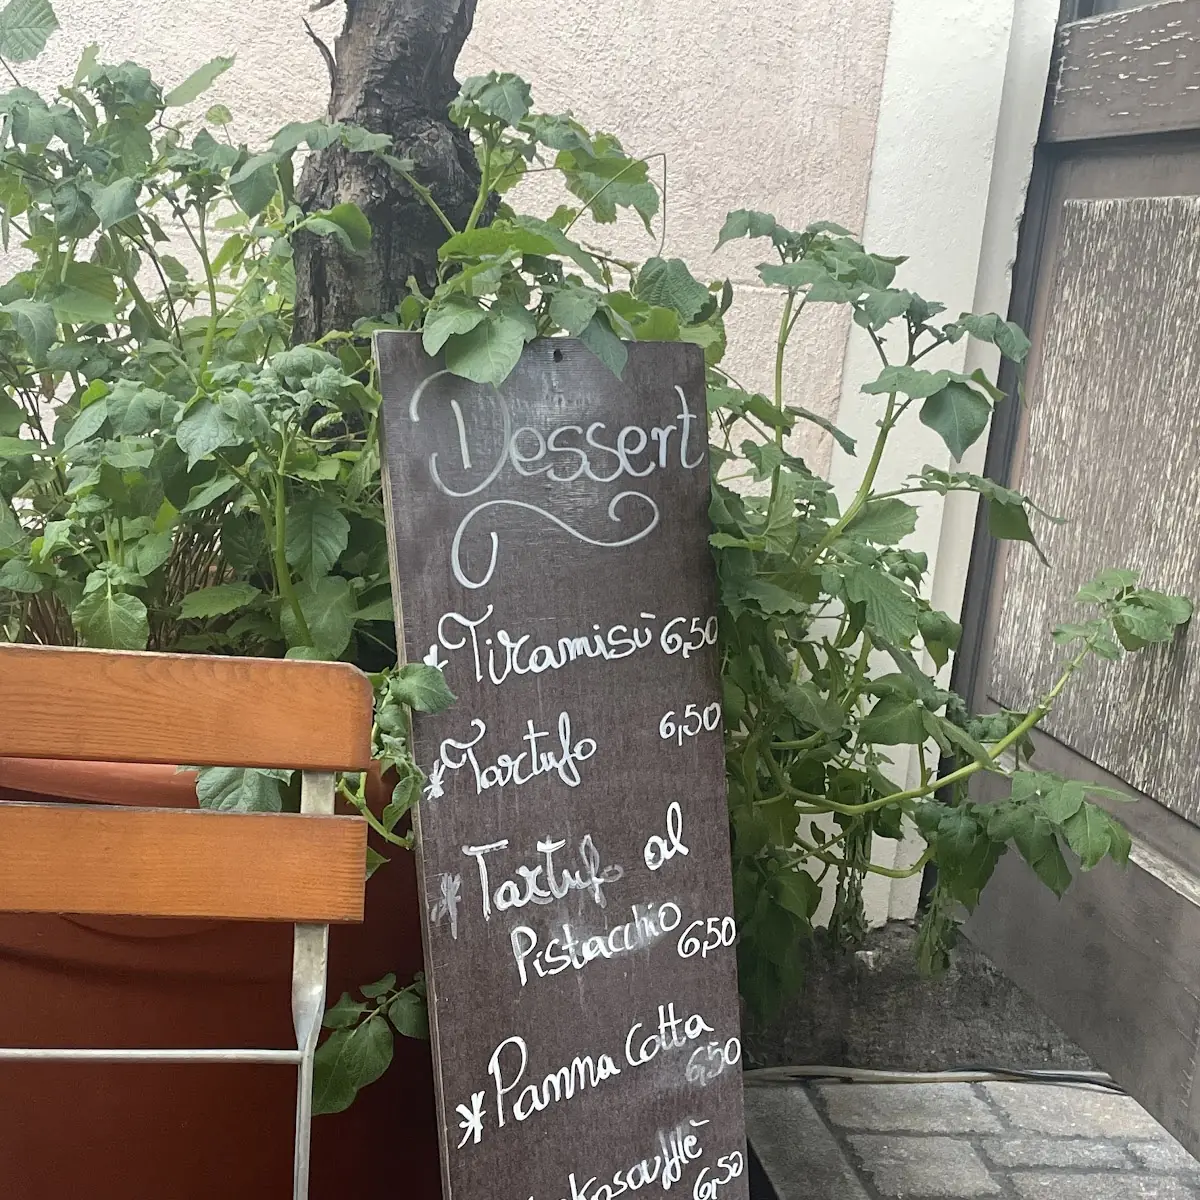 Dessert
* Tiramisù 6,50
* Tartufo 6,50
* Tartufo al
Pistacchio 6,50
* Panna Cotta
6,50
6,50